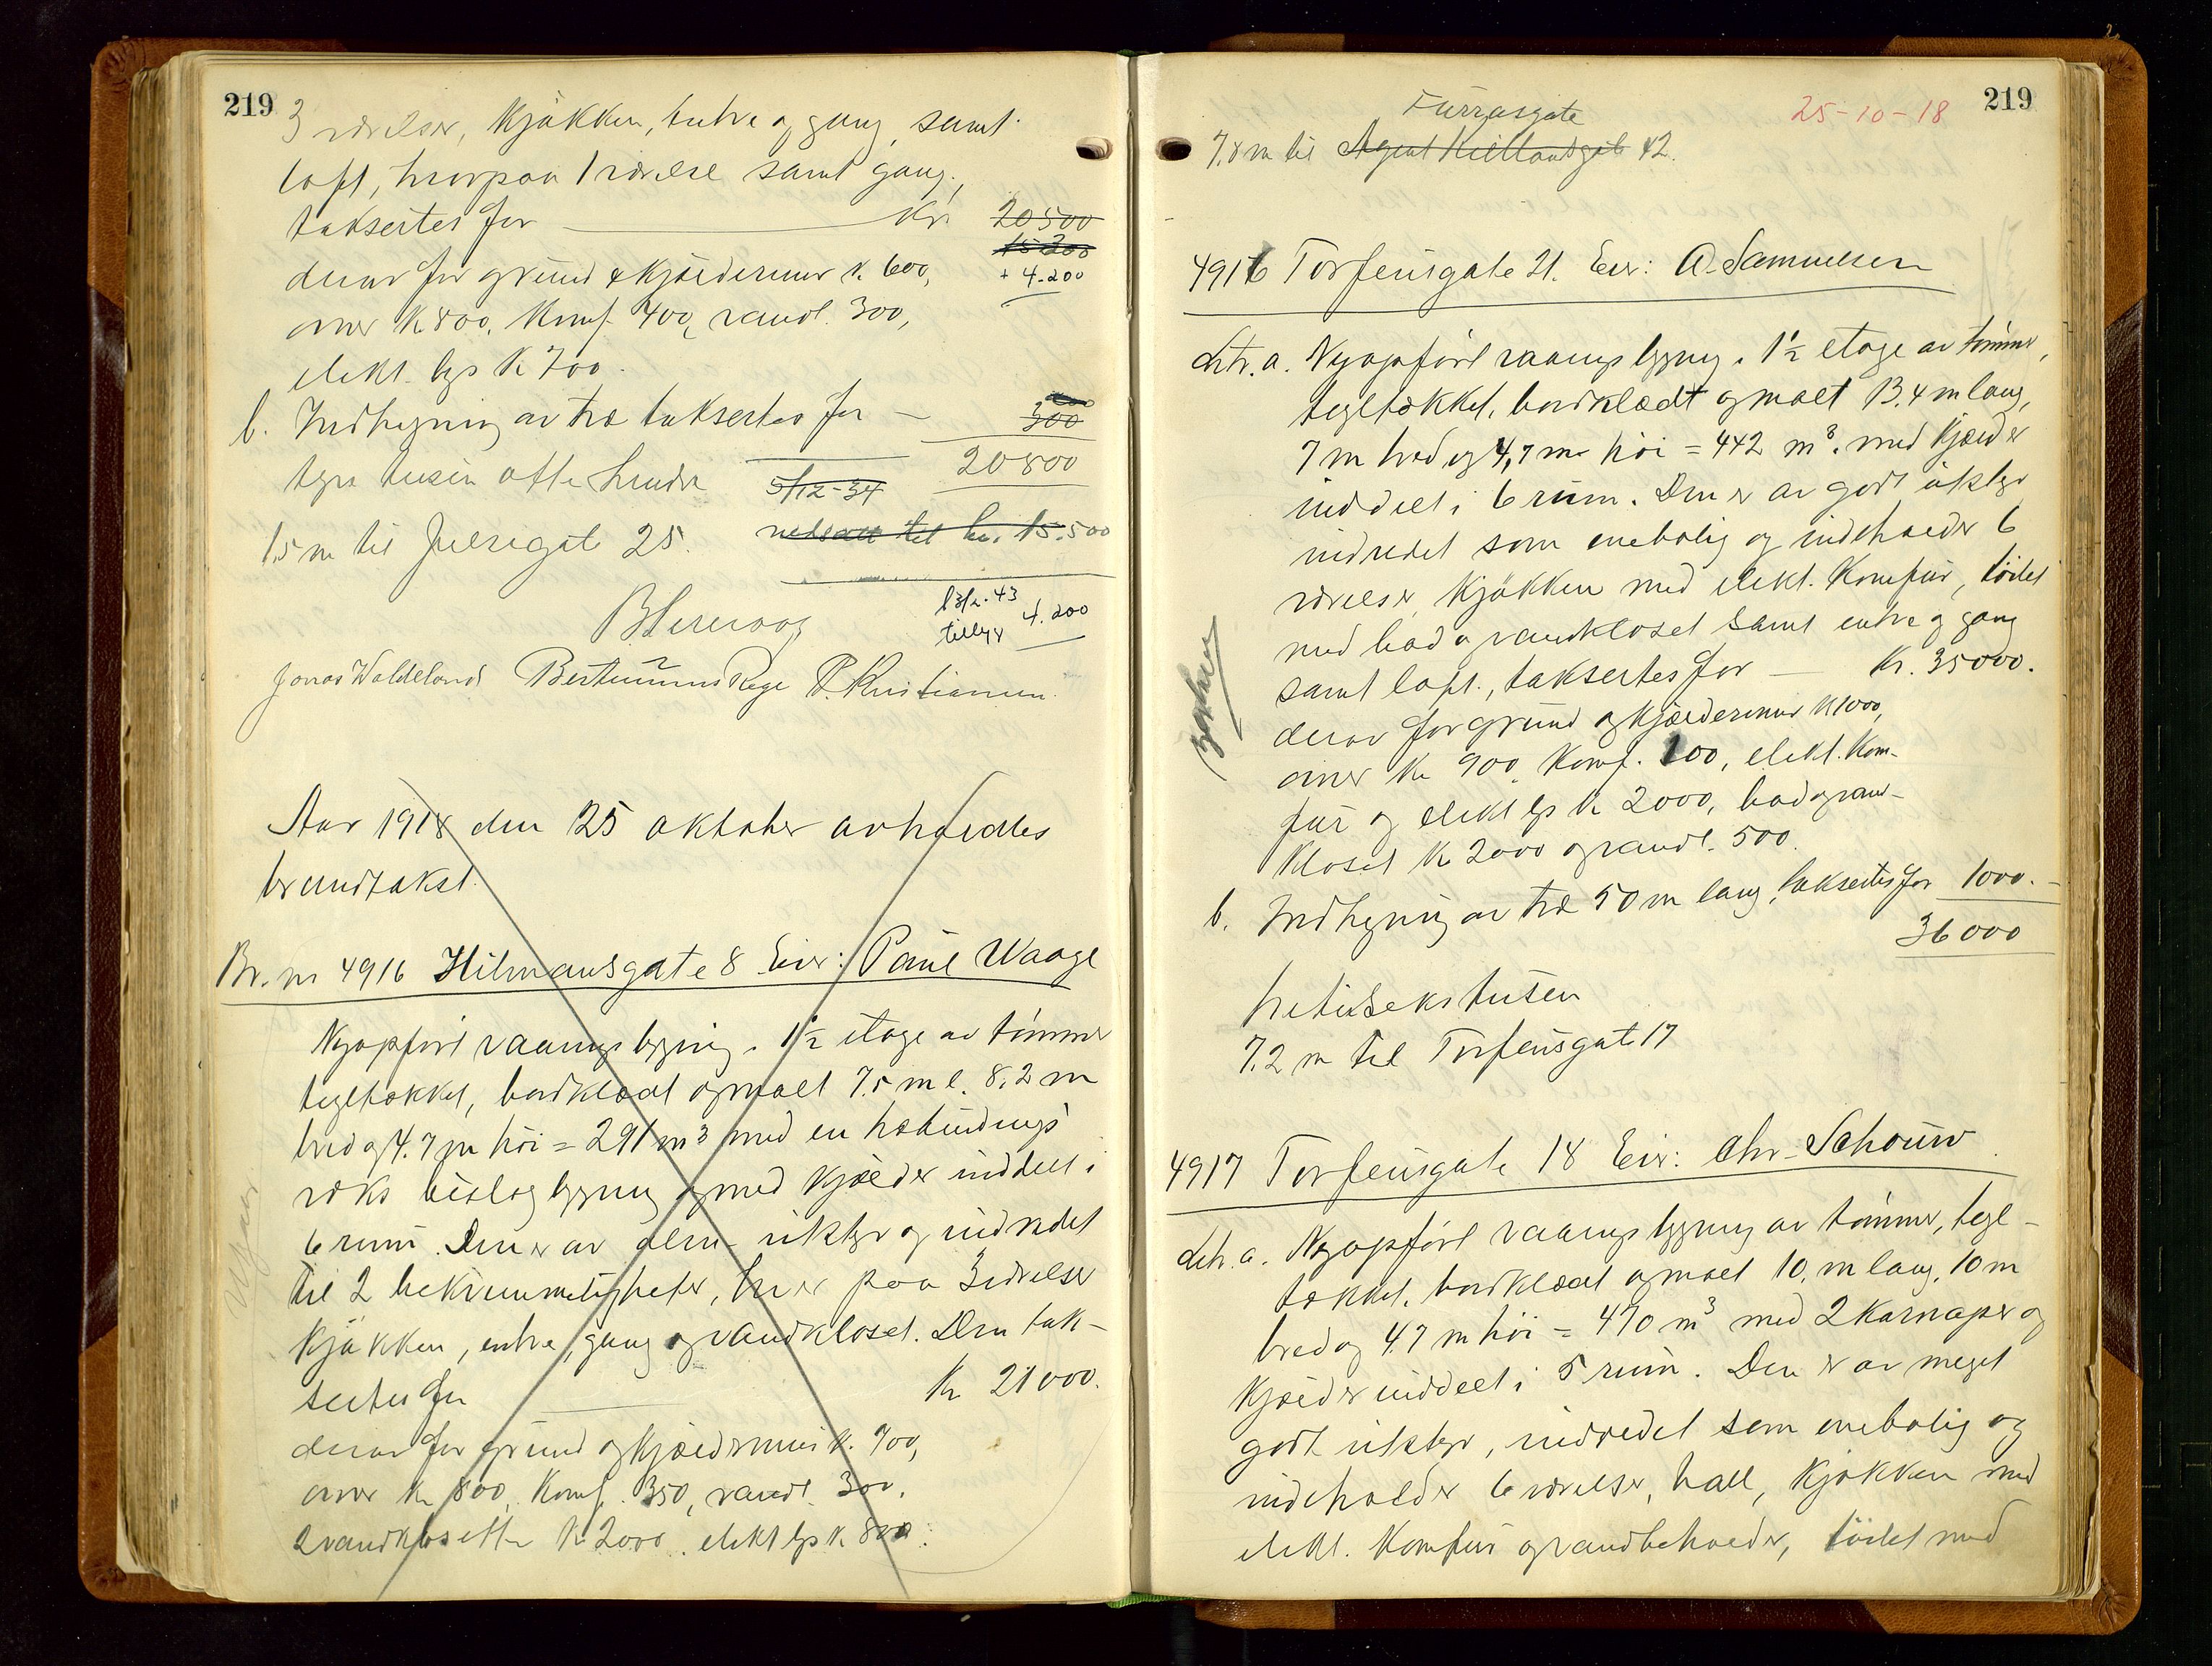 219
3 værelser, Kjøkken, entre og gang samt
loft, hvorpaa 1 værelse samt gang,
taksertes for Kr. 20500
15300
+ 4.200
derav for grund & Kjældermur k. 600,
ovner K 800, Komf. 400, vandl. 300,
elekt. lys K 700.
b. Indhegning av træ taksertes for — 300
20800
tyve tusen otte hundre
5/12-34
nedsatt til kr. 15.500
15 m til Julsigate 25.
13/2.43
tillegg 4.200
Jonas Waldeland Bertinius Rege P. Kristiansen
Aar 1918 den 25 oktober avholdtes
brandtakst.
Br. nr 4916 Hilmansgate 8 Eier: Paul Waage
Nyopført vaaningsbygning i 1½ etage av tømmer
tegltækket, bordklædt og malt 7.5 m l. 8.2 m
bred og 4.7 m høi = 291 m³ med en
væks bislagbygning og med Kjælder inddelt i
6 rum. Den er av alm. utstyr og indredet
til 2 bekvemmeligheter, hver paa 3 værelser
Kjøkken, entre, gang og vandkloset. Den tak-
sertes for Kr 21000.
derav for grund og Kjældermur K. 700,
ovner Kr 800, Komf. 350, vandl. 300,
2 vandklosetter K 2000, elekt lys K. 800.
219
25-10-18
Furrasgate
7.8 m til Agent Kiellandsgate 42.
4916 Torfeusgate 21. Eier: A. Samuelsen
Litr. a. Nyopført vaaningsbygning i 1½ etage av tømmer,
tegltækket, bordklædt og malt 13,4 m lang,
7 m bred og 4,7 m høi = 442 m³. med Kjælder
inddelt i 6 rum. Den er av godt utstyr
indredet som enebolig og indeholder 6
værelser, Kjøkken med elekt. Komfur, toilet
med bad og vandkloset samt entre og gang
samt loft, taksertes for — Kr. 35000.
derav for grund og Kjældermur K 1000,
ovner Kr 900, Komf. 100, elekt. Kom-
fur og elekt lys K 2000, bad og vand-
kloset Kr 2000 og vandl. 500.
b. Indhegning av træ 50 m lang, taksertes for 1000.—
36000
trettisekstusen
7.2 m til Torfeusgate 17
4917 Torfeusgate 18 Eier: Chr. Schouw
Litr. a. Nyopført vaaningsbygning av tømmer, tegl-
tækket, bordklædt og malt 10. m lang, 10 m
bred og 4.7 m høi = 470 m³ med 2 Karnaper og
Kjælder inddelt i 5 rum. Den er av meget
godt utstyr, indredet som enebolig og
indeholder 6 værelser, hall, Kjøkken med
elekt. Komfur og vandbeholder, toilet med